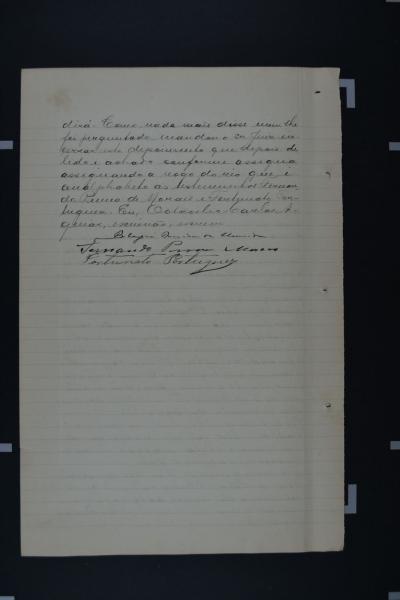 dirá. Como nada mais disse nem lhe
foi perguntado, mandou o Sr. Juiz en-
cerrar este depoimento que depois de
lido e achado conforme assigna
assignando a rogo do réo que é
analphabeto as testemunhas Fernan-
do Penna de Moraes e Fortunato Por-
tuguez. Eu, Carlos
escrivão, escrevi
de Almeida
Fernando Moraes
Fortunato Portuguez